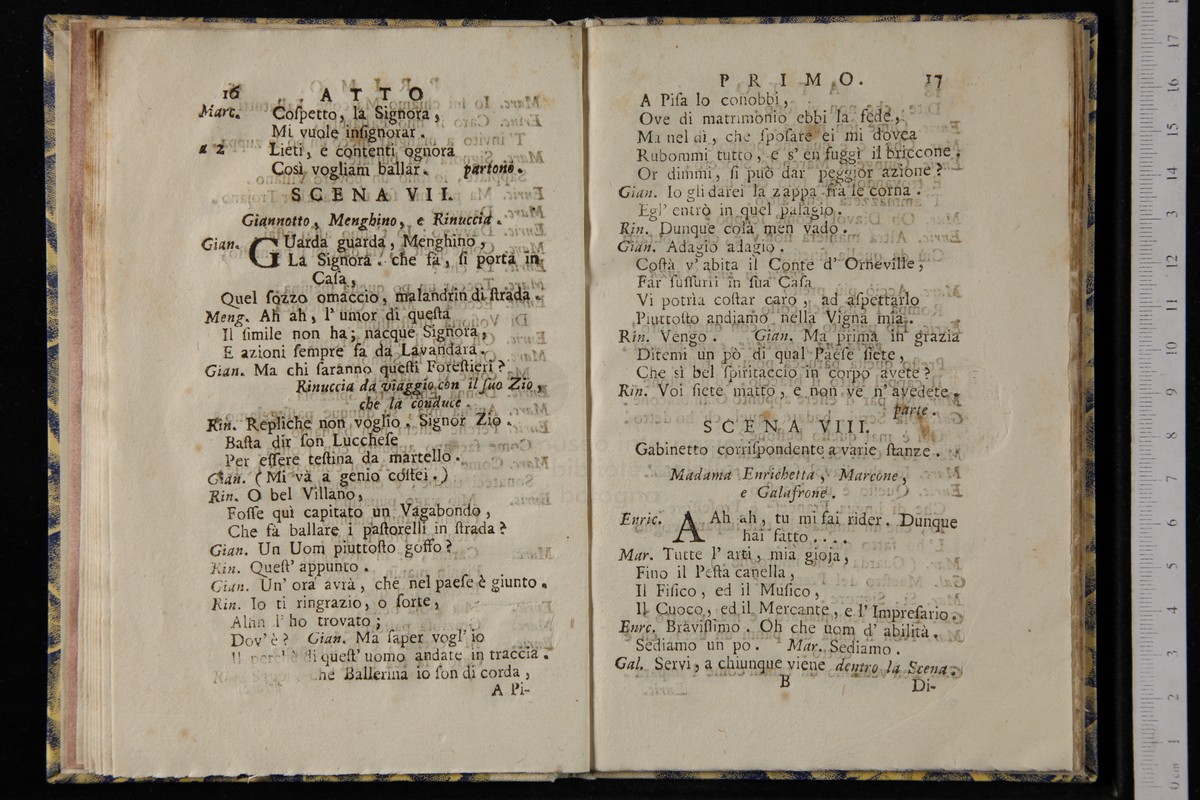 16 ATTO
Marc. Coſpetto, la Signora,
Mi vuole inſignorar.
a 2 Lieti, e contenti ognora
Così vogliam ballar. partono.
SCENA VII.
Giannotto, Menghino, e Rinuccia.
Gian. GUarda guarda, Menghino,
La Signora. che fà, ſi porta in
Caſa,
Quel ſozzo omaccio, malandrin di ſtrada.
Meng. Ah ah, l' umor di queſta
Il ſimile non ha; nacque Signora,
E azioni ſempre fa da Lavandara.
Gian. Ma chi ſaranno queſti Foreſtieri?
Rinuccia da viaggio con il ſuo Zio,
che la conduce.
Rin. Repliche non voglio. Signor Zio.
Baſta dir ſon Luccheſe
Per eſſere teſtina da martello.
Gian. (Mi và a genio coſtei.)
Rin. O bel Villano,
Foſſe quì capitato un Vagabondo,
Che fà ballare i paſtorelli in ſtrada?
Gian. Un Uom piuttoſto goffo?
Rin. Queſt' appunto.
Gian. Un' ora avrà, che nel paeſe è giunto.
Rin. Io ti ringrazio, o ſorte,
Alfin l' ho trovato;
Dov' è? Gian. Ma ſaper vogl' io
Il perchè di queſt' uomo andate in traccia.
he Ballerina io ſon di corda,
A Pi-
PRIMO. 17
A Piſa lo conobbi,
Ove di matrimonio ebbi la fede,
Ma nel dì, che ſpoſare ei mi dovea
Rubommi tutto, e s' en fuggì il briccone.
Or dimmi, ſi può dar peggior azione?
Gian. Io gli darei la zappa fra le corna.
Egl' entrò in quel palagio.
Rin. Dunque colà men vado.
Gian. Adagio adagio.
Coſtà v' abita il Conte d' Orneville,
Far ſuſſurri in ſua Caſa
Vi potria coſtar caro, ad aſpettarlo
Piuttoſto andiamo nella Vigna mia.
Rin. Vengo. Gian. Ma prima in grazia
Ditemi un pò di qual Paeſe ſiete,
Che sì bel ſpiritaccio in corpo avete?
Rin. Voi ſiete matto, e non ve n' avedete.
parte.
SCENA VIII.
Gabinetto corriſpondente a varie ſtanze.
Madama Enrichetta, Marcone,
e Galafrone.
Enric. AAh ah, tu mi fai rider. Dunque
hai fatto....
Mar. Tutte l' arti, mia gioja,
Fino il Peſta canella,
Il Fiſico, ed il Muſico,
Il Cuoco, ed il Mercante, e l' Impreſario.
Enrc. Braviſſimo. Oh che uom d' abilità.
Sediamo un po. Mar. Sediamo.
Gal. Servi, a chiunque viene dentro la Scena.
B Di-